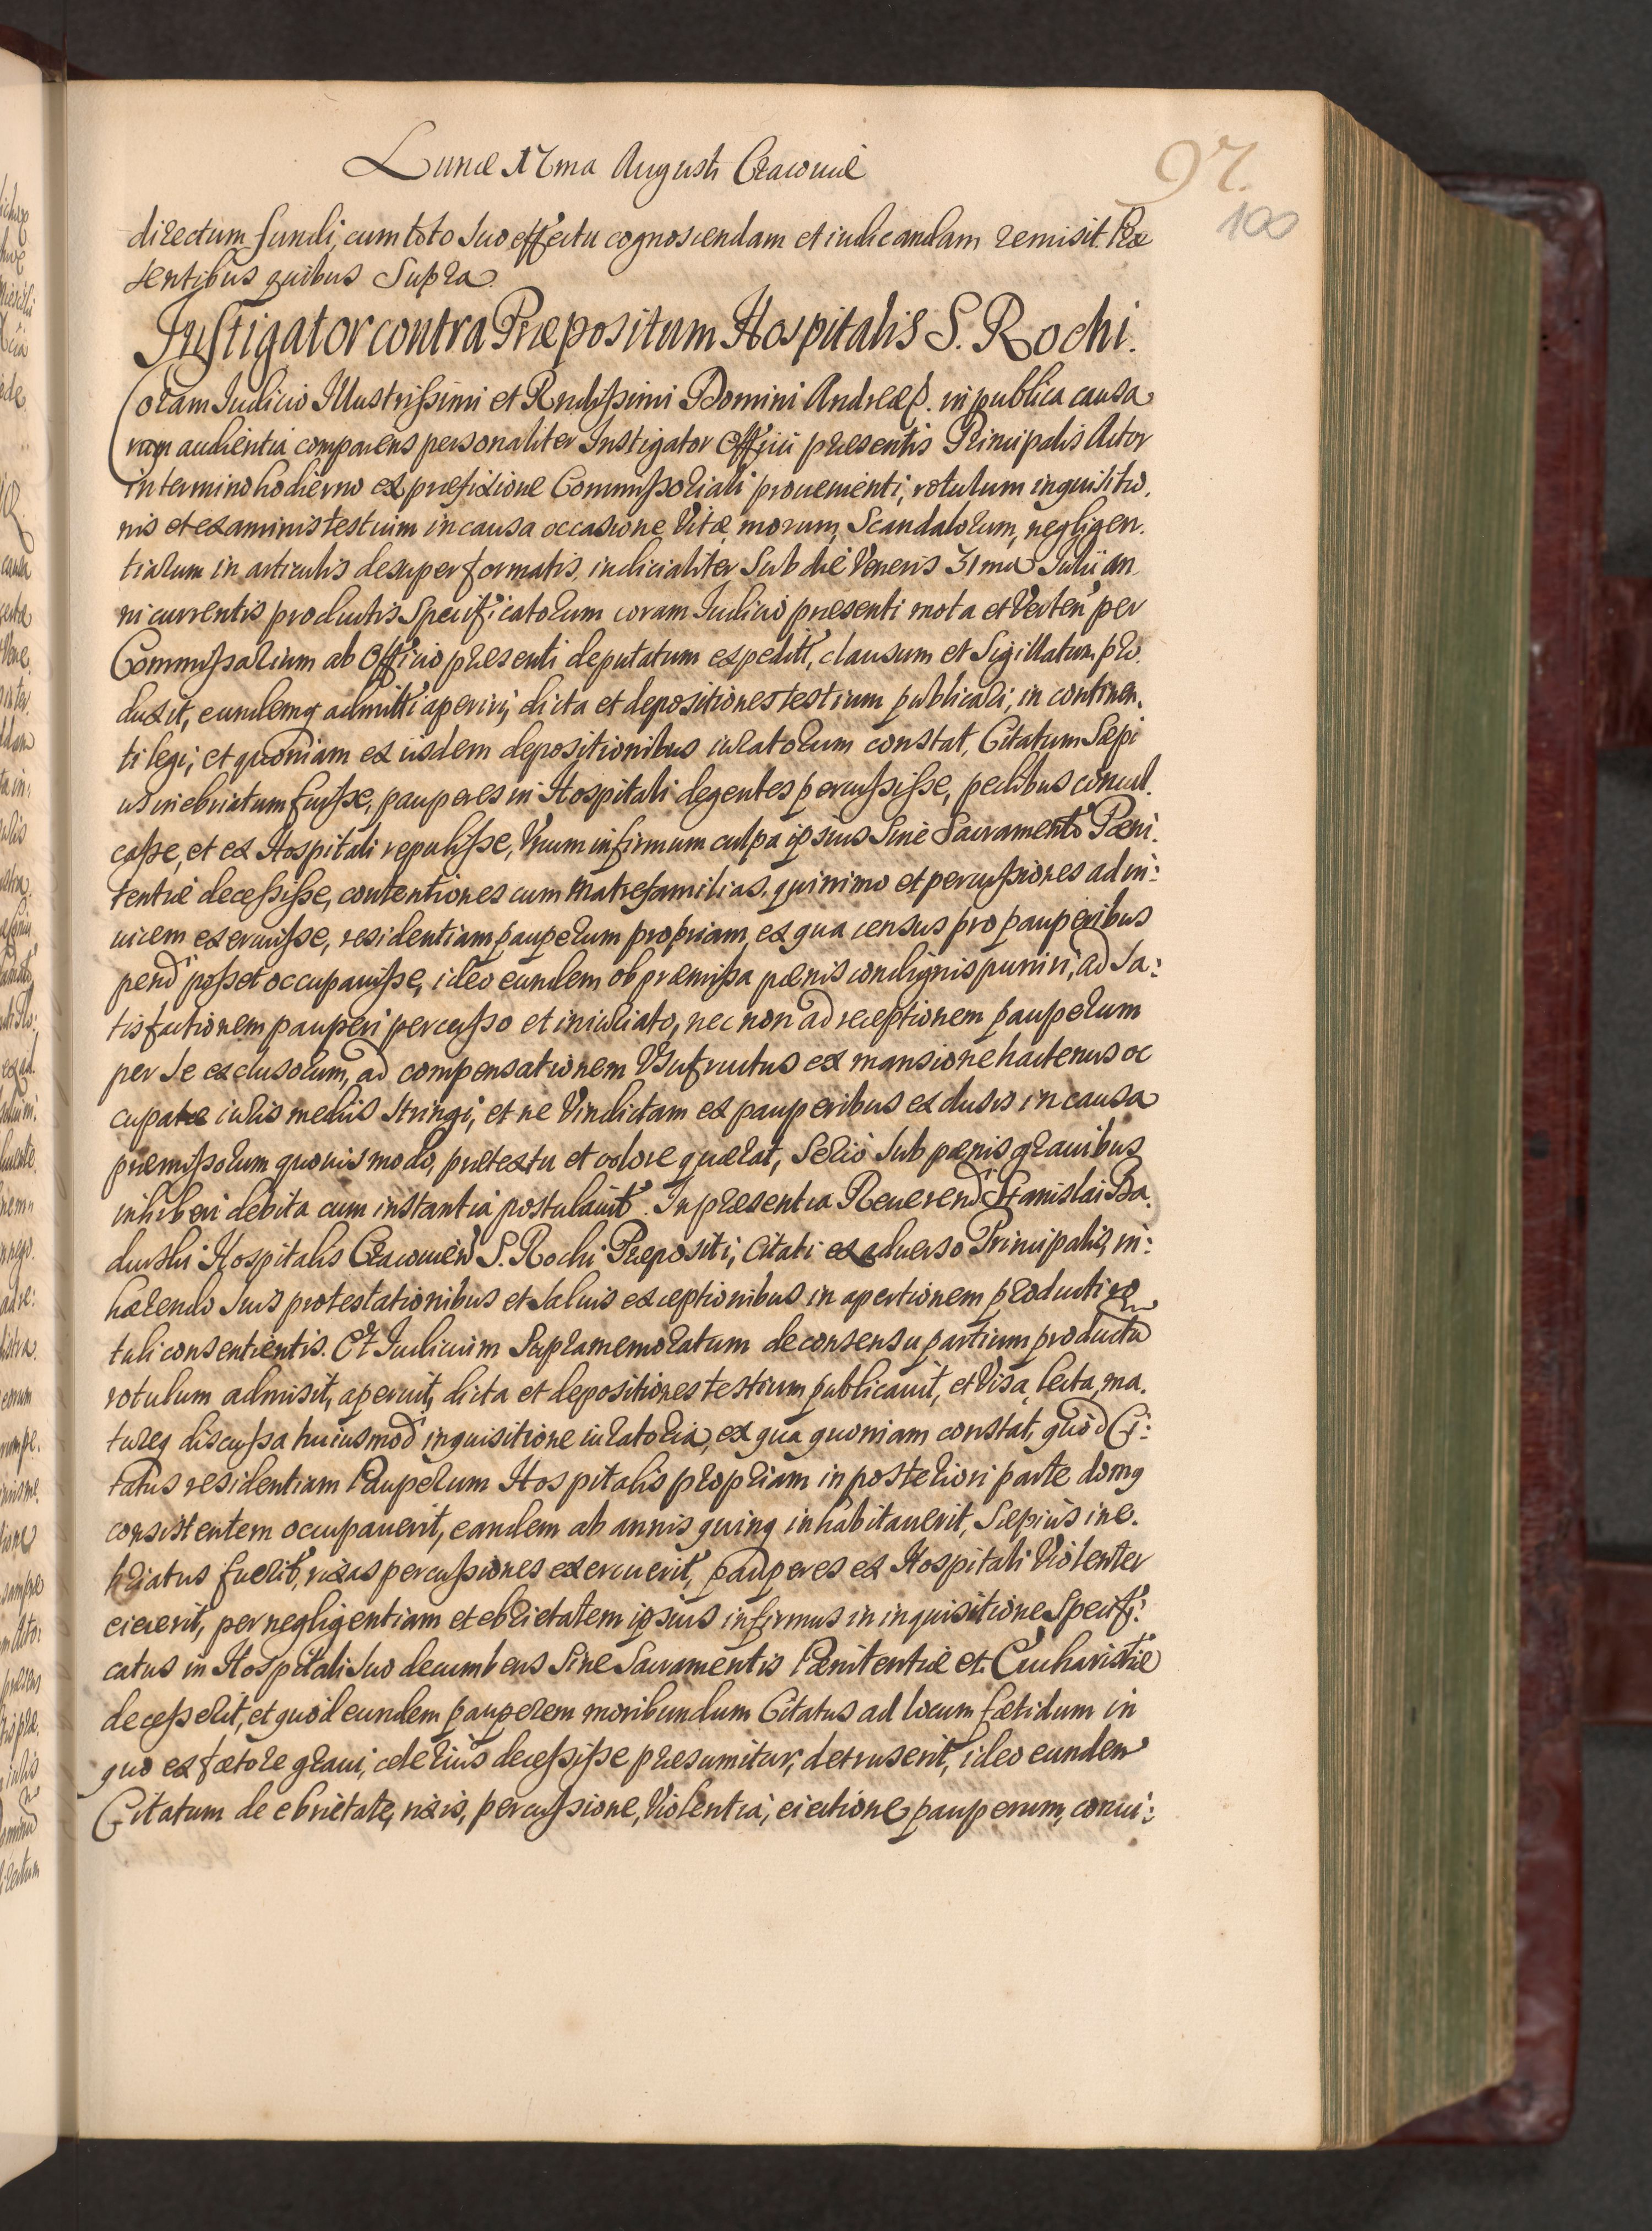 Lunæ 17ma Augusti Cracoviæ
97.
100
directum fundi, cum toto suo effectu cognoscendam et iudicandam remisit. Præ
sentibus quibus Supra.
Instigator contra Præpositum Hospitalis S. Rochi.
Coram Iudicio Illustrissimi et Rndissimi Domini Andreæ p. in publica causa
rum audientia comparens personaliter Instigator Officii præsentis Principalis Actor
in termino hodierno ex præfixione Commissoriali provenienti, rotulum inquisitio.
nis et examinis testium in causa occasione Vitæ, morum, Scandalorum, negligen.
tiarum in articulis desuper formatis, indicialiter Sub die Veneris 31ma Iulii an
ni currentis productis Specificatorum coram Iudicio præsenti mota et Verten̄ per
Commissarium ab Officio præsenti deputatum expedit̄, clausum et Sigillatum pro.
duxit, eundemq admitti aperiri, dicta et depositiones testium publicari, in continen.
ti legi, et quoniam ex iisdem depositionibus iuratorum constat, Citatum Sæpi
us inebriatum fuisse, pauperes in Hospitali degentes percussisse, pedibus concul.
casse, et ex Hospitali repulisse, Vnum infirmum culpa ipsius Sine Sacramento Pæni:
tentiæ decessisse, contentiones cum Matrefamilias, quinimo et percussiones ad in:
uicem exercuisse, residentiam pauperum propriam, ex qua census pro pauperibus
pend̄ posset occupauisse, ideo eundem ob præmissa pænis condignis puniri, ad Sa:
tisfactionem pauperi percusso et iniuriato, nec non ad receptionem pauperum
per Se exclusorum, ad compensationem Vsufructus ex mansione hactenus oc
cupatæ iuris mediis Stringi, et ne Vindictam ex pauperibus exclusis in causa
præmissorum quouis modo, prætextu et colore quærat, Serio Sub pænis grauibus
inhiberi debita cum instantia postulauit. In præsentia Reuerend̄ Stanislai Ba.
durski Hospitalis Cracouien̄ S. Rochi Præpositi, Citati ex aduerso Principalis, in:
hærendo Suis protestationibus et Saluis exceptionibus in apertionem producti ro
tuli consentientis. Et Iudicium Supramemoratum de consensu partium productū
rotulum admisit, aperuit, dicta et depositiones testium publicauit, et Visa, lecta, ma.
tureq discussa huiusmod̄ inquisitione iuratoria, ex qua quoniam constat, quod Ci:
tatus residentiam Pauperum Hospitalis propriam in posteriori parte domq
consistentem occupauerit, eandem ab annis quinq inhabitauerit, Sæpius ine.
briatus fuerit, rixas percussiones exercuerit, pauperes ex Hospitali Violenter
eiecerit, per negligentiam et ebrietatem ipsius infirmus in inquisitione Specifi:
catus in Hospitali Suo decumbens Sine Sacramentis Pænitentiæ et Eucharistiæ
decesserit, et quod eundem pauperem moribundum Citatus ad locum fætidum in
quo ex fætore graui, celerius decessisse præsumitur, detruserit, ideo eundem
Citatum de ebrietate, rixis, percussione, Violentia, eiectione pauperum, conui: